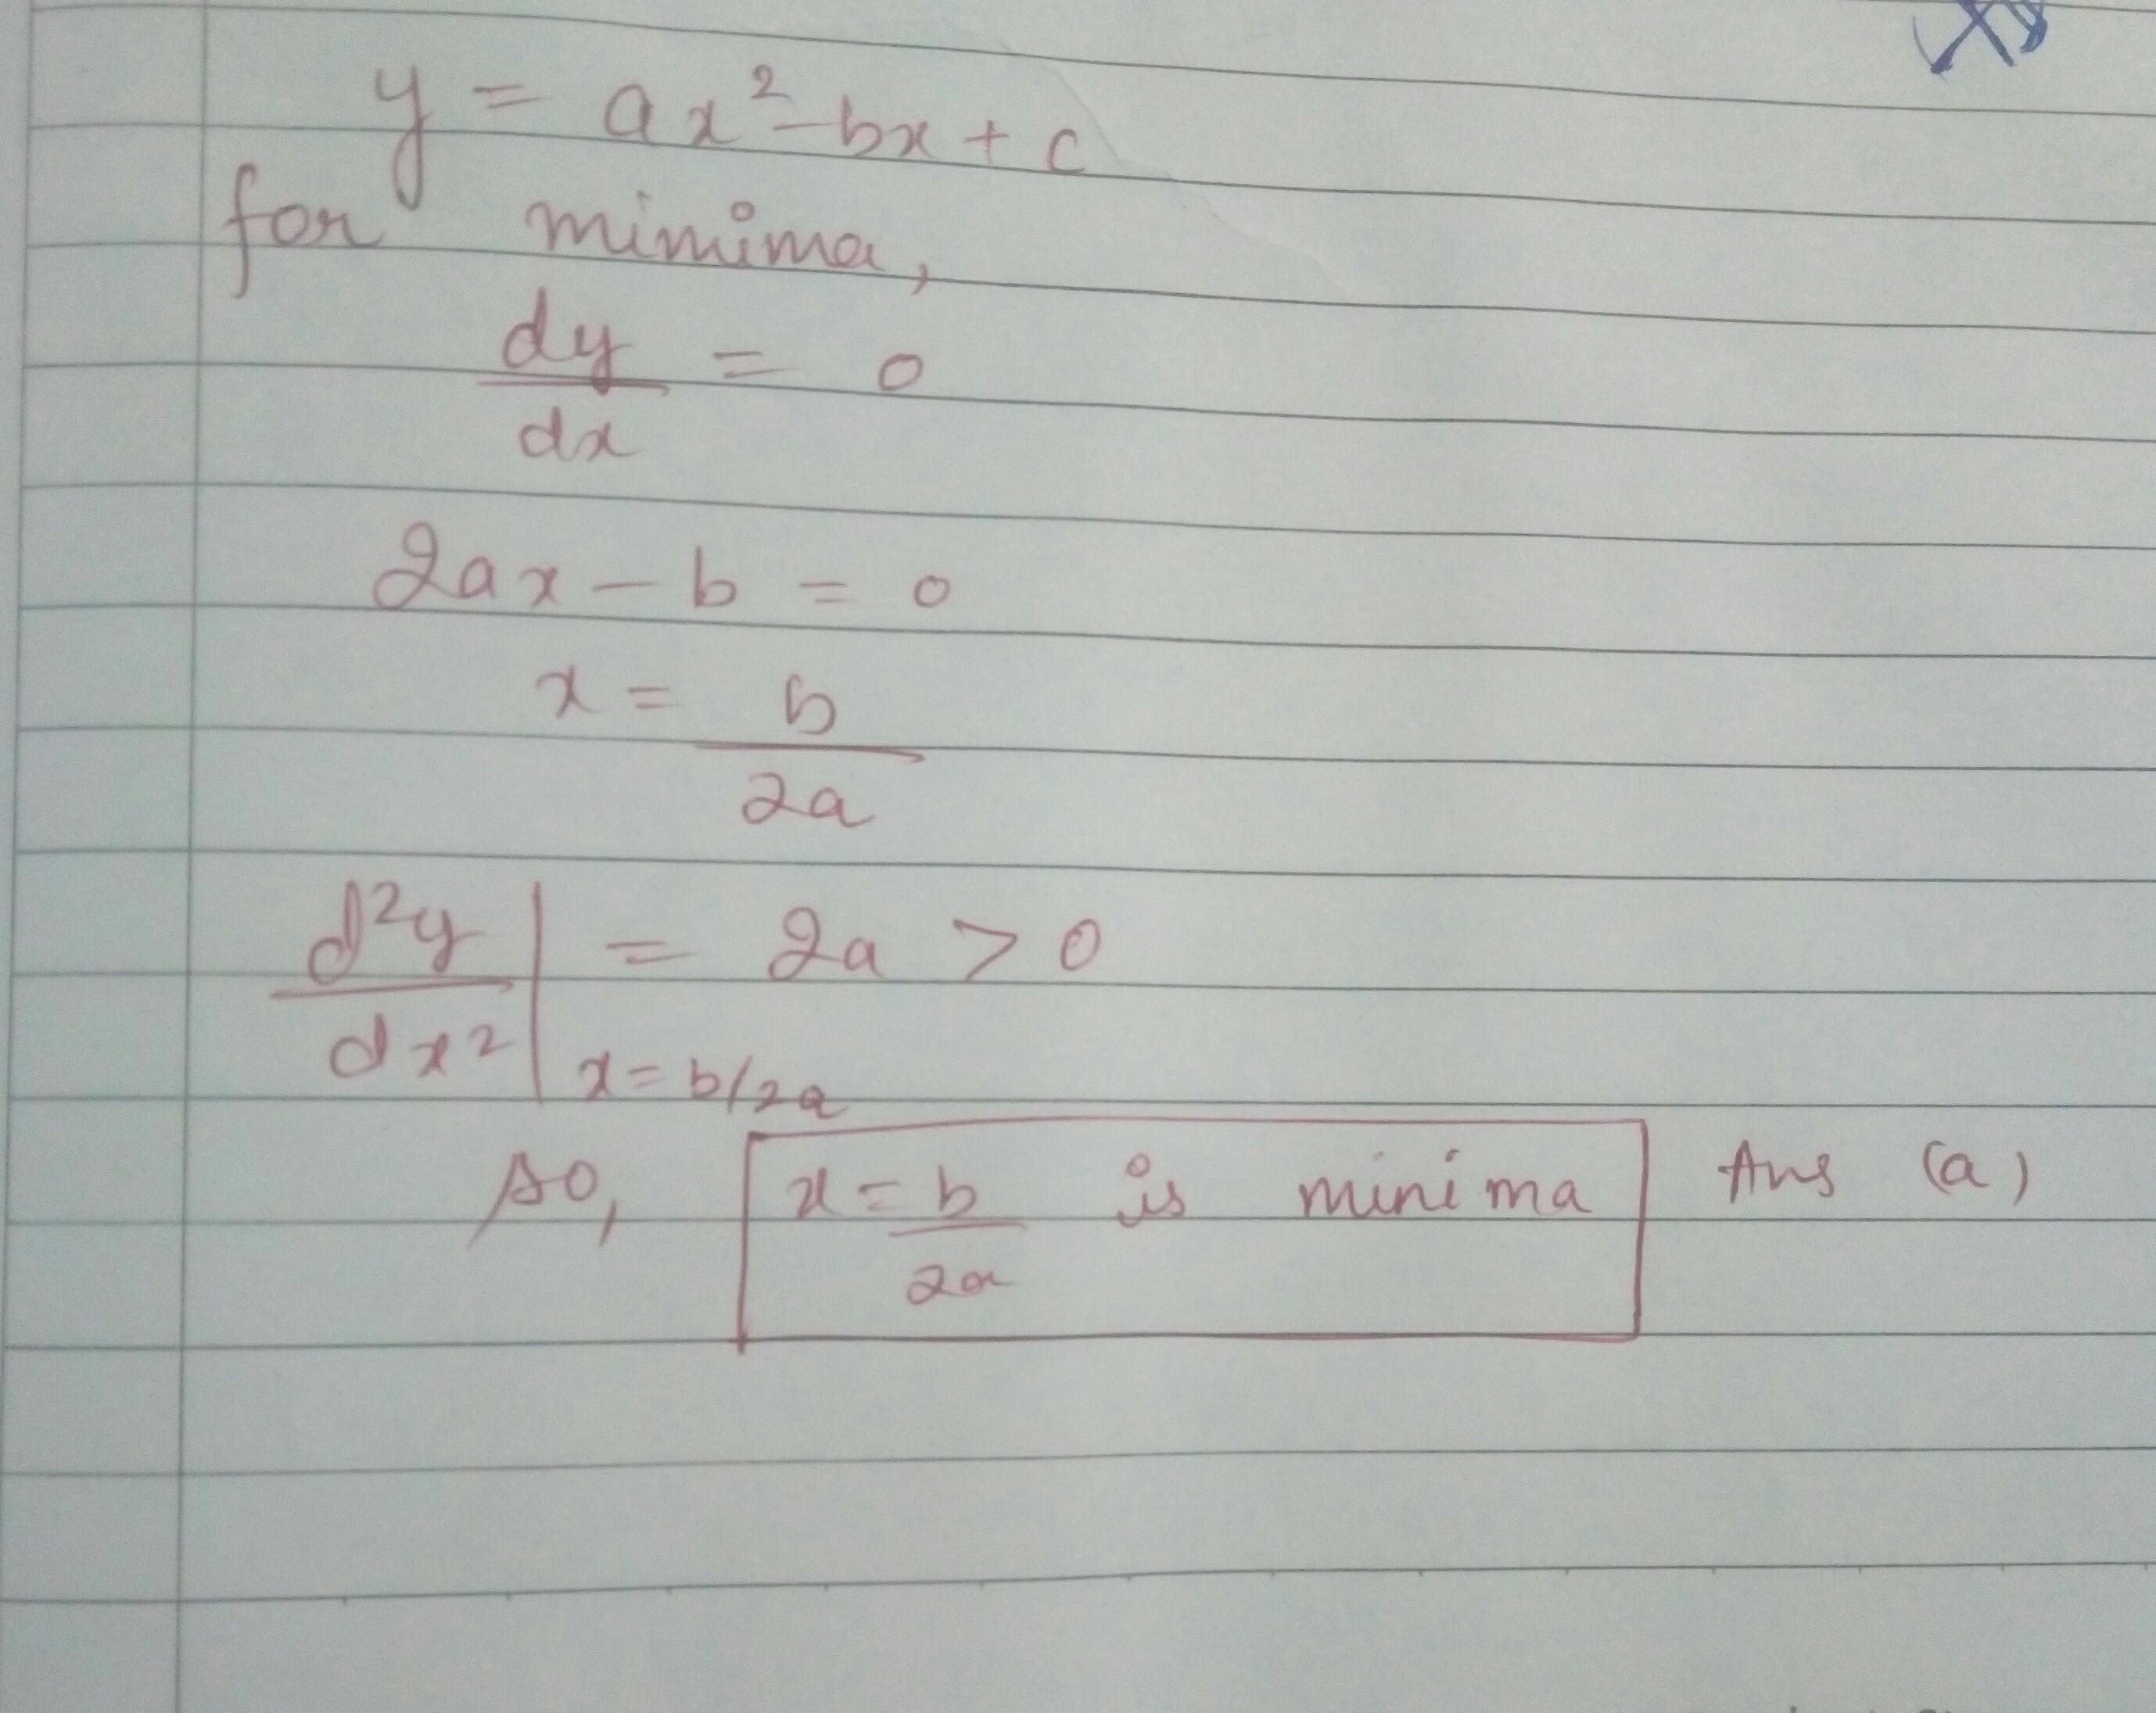 y = ax² - bx + c
for minima,
dy/dx = 0
2ax - b = 0
x = b/2a
d²y/dx² | x = b/2a = 2a > 0
so, x = b/2a is minima Ans (a)